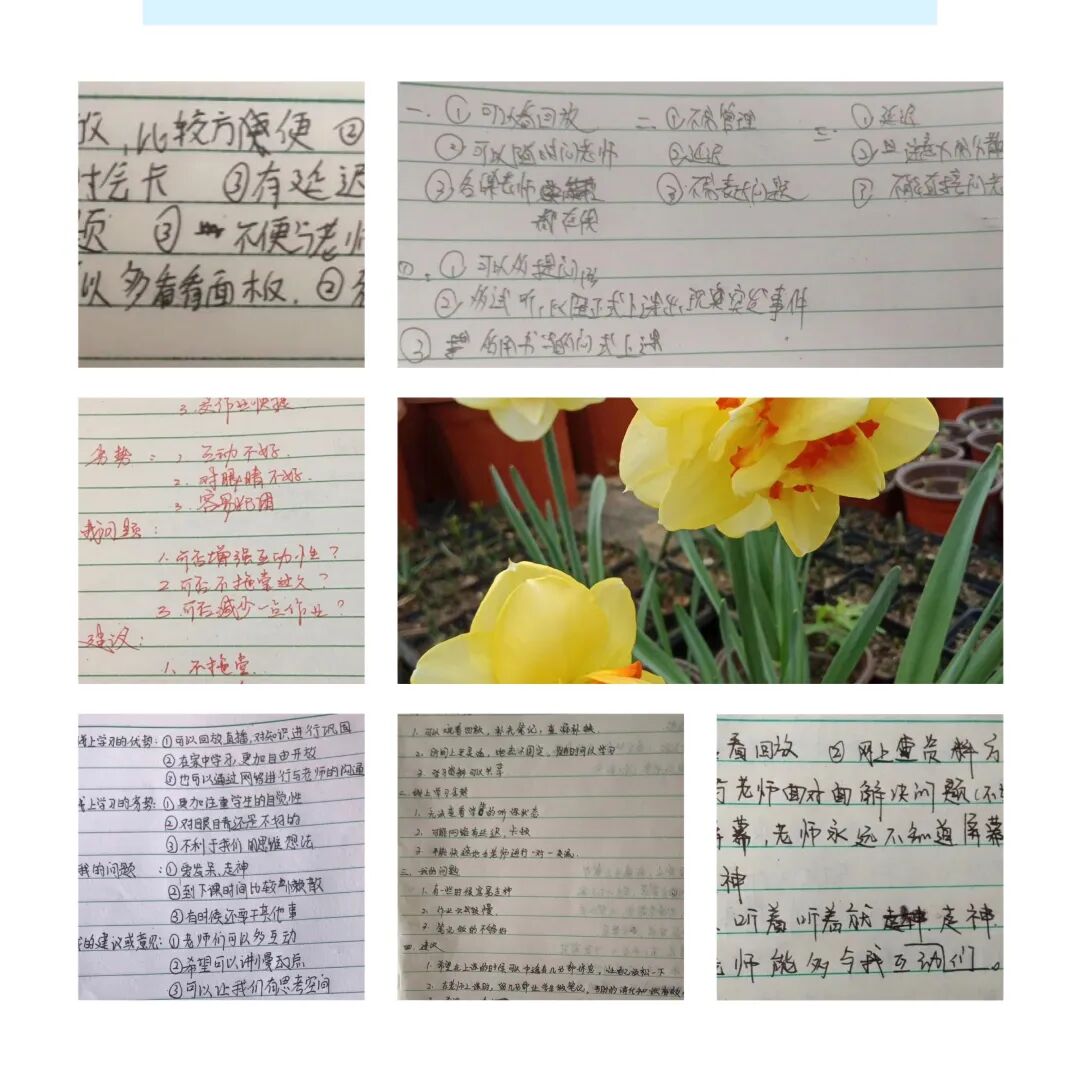 放,比较方便 ②
时会卡 ③有延迟
题 ③ 不便与老师
以多看看面板. ②
一. ①可以看回放 二. ①不易管理 三. ①延迟
②可以随时问老师 ②延迟 ② 注意力
③各课老师 ③不易表达问题 ③不能直接问老
都在使
四. ①可以多提问
②多试听,以
③ 多用书
3. 交作业快捷
劣势: 1. 互动不好.
2. 对眼睛不好.
3. 容易犯困
我问题:
1. 可否增强互动性?
2. 可否不拖堂过久?
3. 可否减少一点作业?
建议:
1. 不拖堂.
线上学习的优势: ①可以回放直播,对知识进行巩固
②在家中学习,更加自由开放
③也可以通过网络进行与老师的沟通
线上学习的劣势: ①更加注重学生的自觉性
②对眼睛还是不好的
③不利于我们的思维想法
我的问题 : ①爱发呆,走神
②到下课时间比较懒散
③有时候还要干其他事
的建议或意见: ①老师们可以多互动
②希望可以讲慢点
③可以让我们有思考空间
1. 可以观看回放, 补充笔记, 查漏补缺
2. 时间上更灵活, 地点不固定, 随时可以学习
3. 学习资料可以共享
二. 线上学习劣势
1. 无法查看学生的听课状态
2. 可能网络有延迟, 卡顿
3. 不能快速地与老师进行一对一交流.
三. 我的问题
1. 有一些时候容易走神
2. 作业完成较慢.
3. 笔记做的不够好
四. 建议
1. 希望在上课的时候可以中途有几分钟休息, 让自己放松一下
2. 在老师上课时, 留几分钟让学生做笔记,
看回放 ②网上查资料方
老师面对面解决问题(不
屏幕,老师永远不知道屏幕
神
听着听着就走神.
师能多与我们互动。